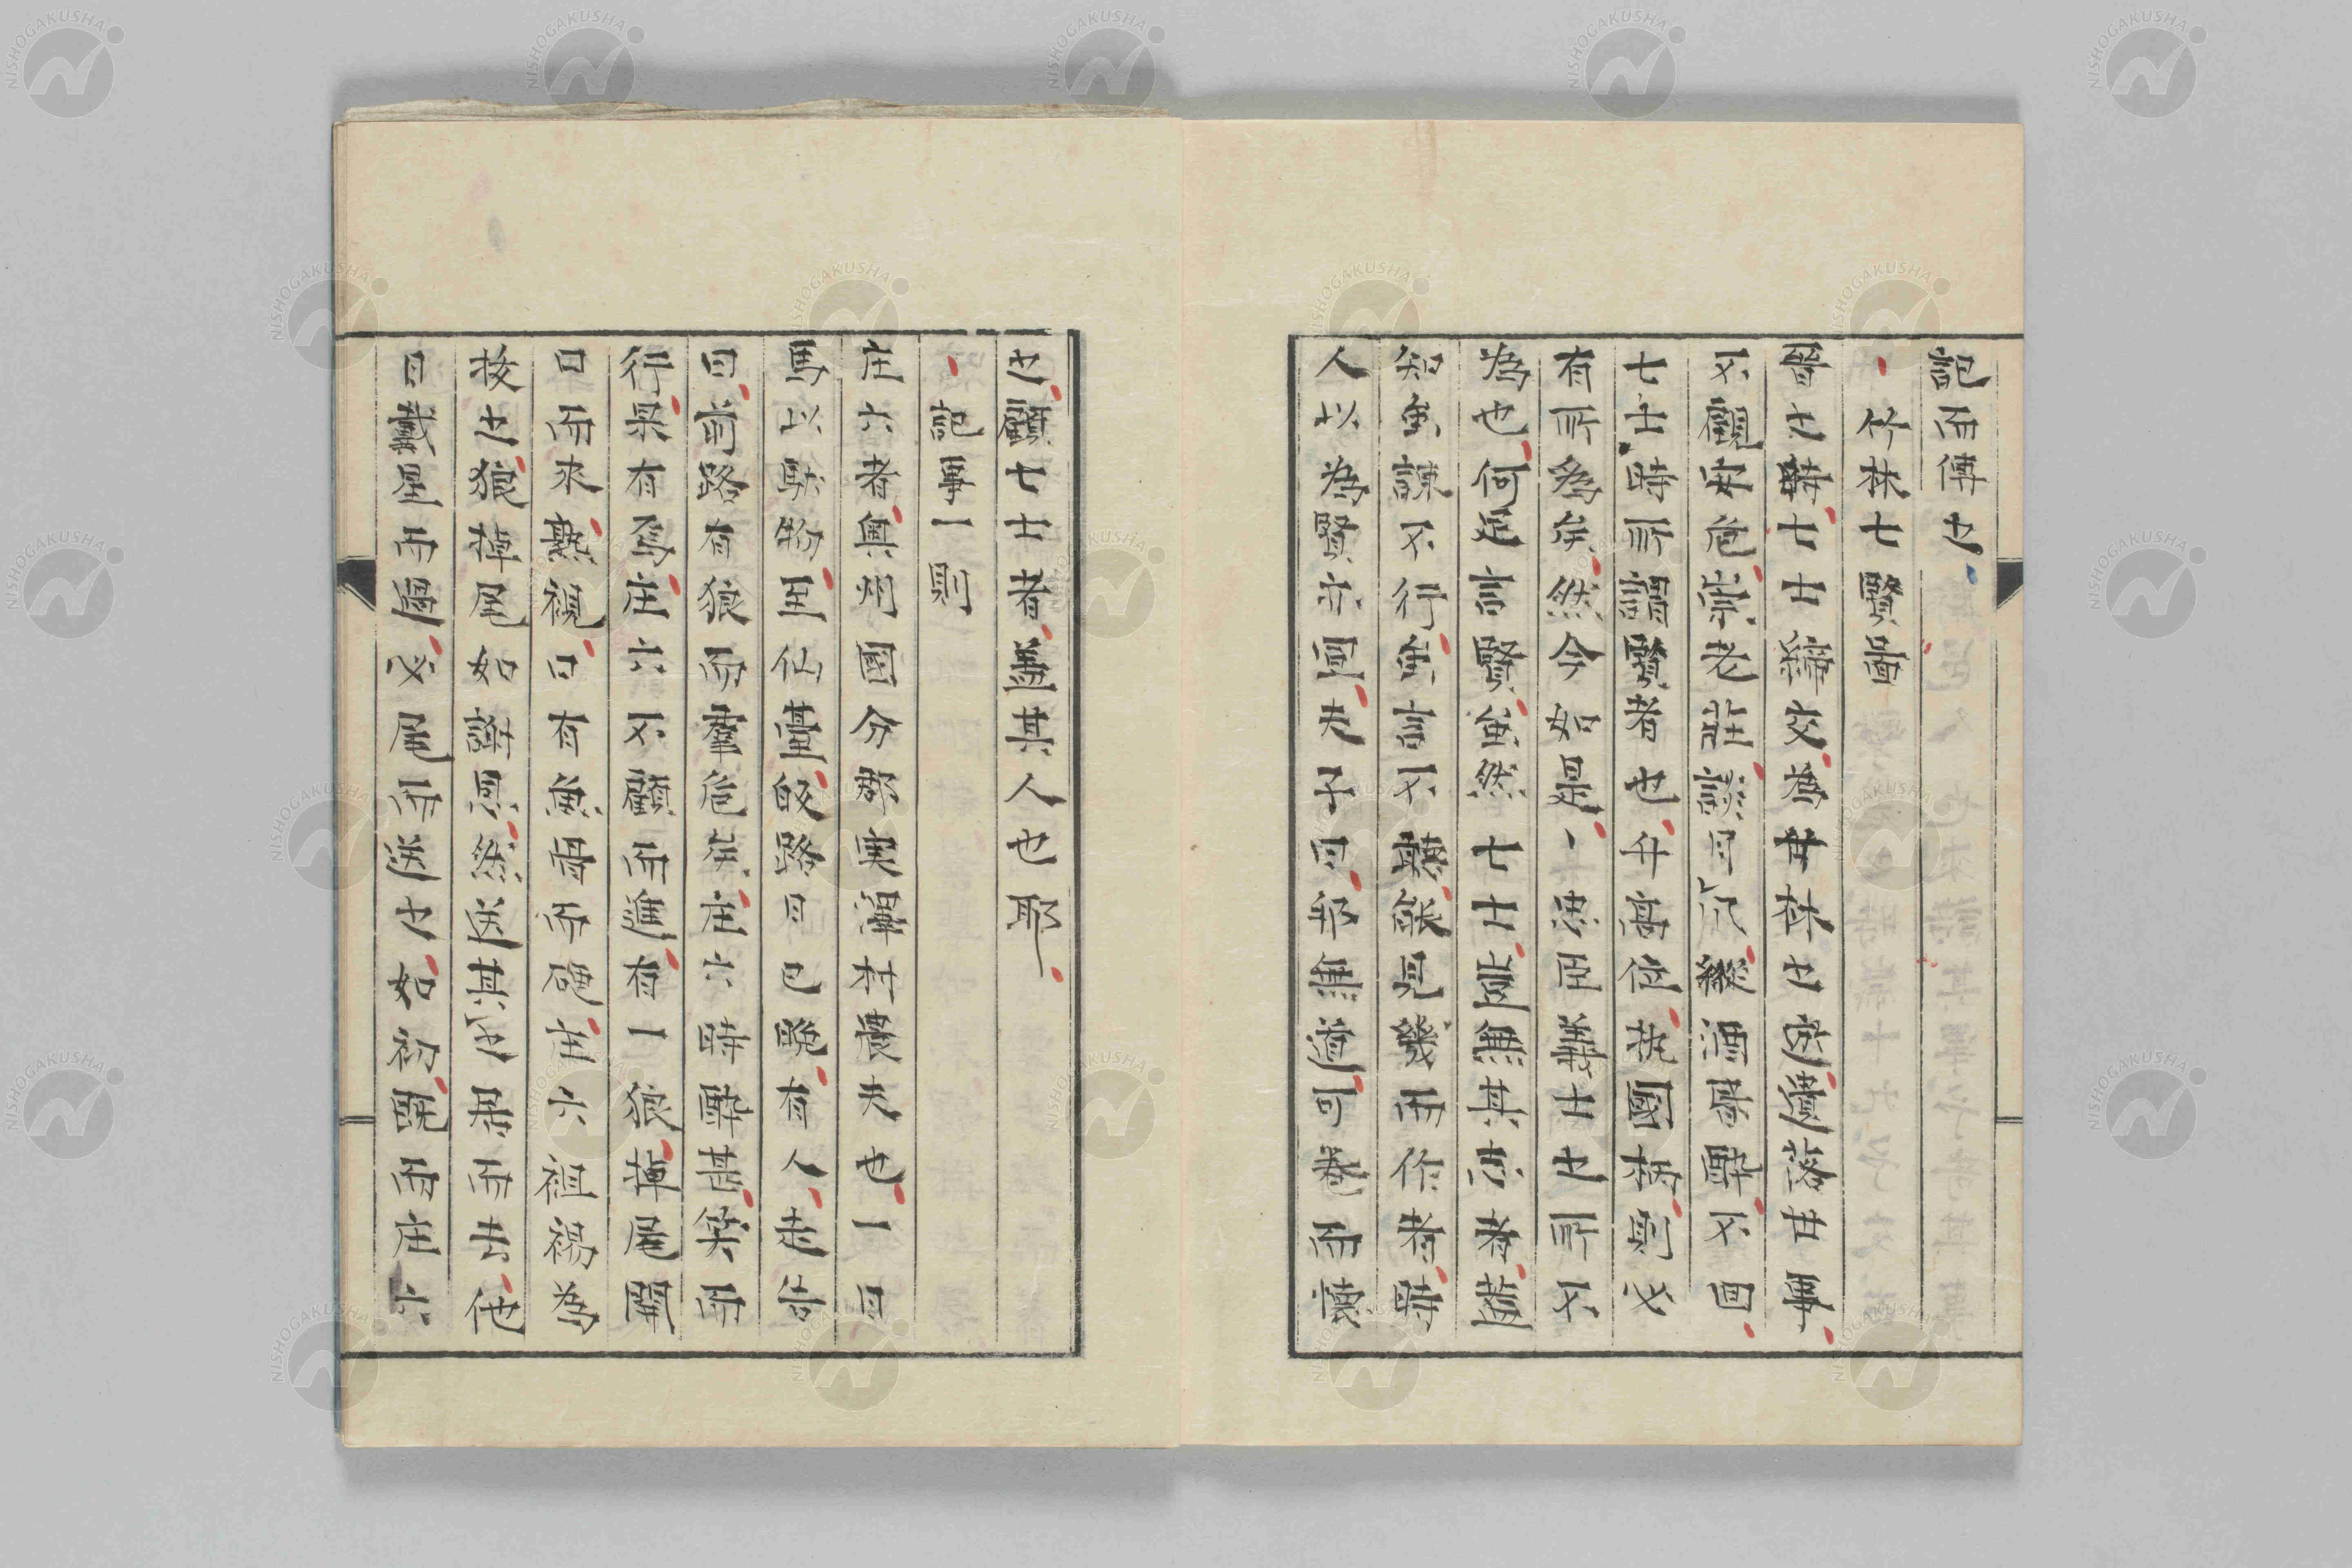 記而傳之
竹林七賢圖
晉之時七士締交為竹林之遊遺落世事
不顧安危崇老莊談日沉緩酒昏醉不回
七士時所謂賢者也年高位執國柄則必
有所為矣然今如是忠臣義士之所不
為也何足言賢虽然七士豈無其志者蓋
知虽諫不行虽言不聽見幾而作者時
人以為賢亦宜夫子曰邦無道可卷而懷
之顧七士者蓋其人也耶
記事一則
庄六者奥州國分郡実澤村農夫也一日
馬以駄物至仙臺皈路日已晩有人走告
曰前路有狼而群危矣庄六時醉甚笑而
行果有焉庄六不顧而進有一狼掉尾開
口而來熟視口有魚骨而硬庄六袒裼為
拔之狼掉尾如謝恩然送其之居而去他
日戴星而歸必尾而送之如初既而庄六
NISHOGAKUSHA